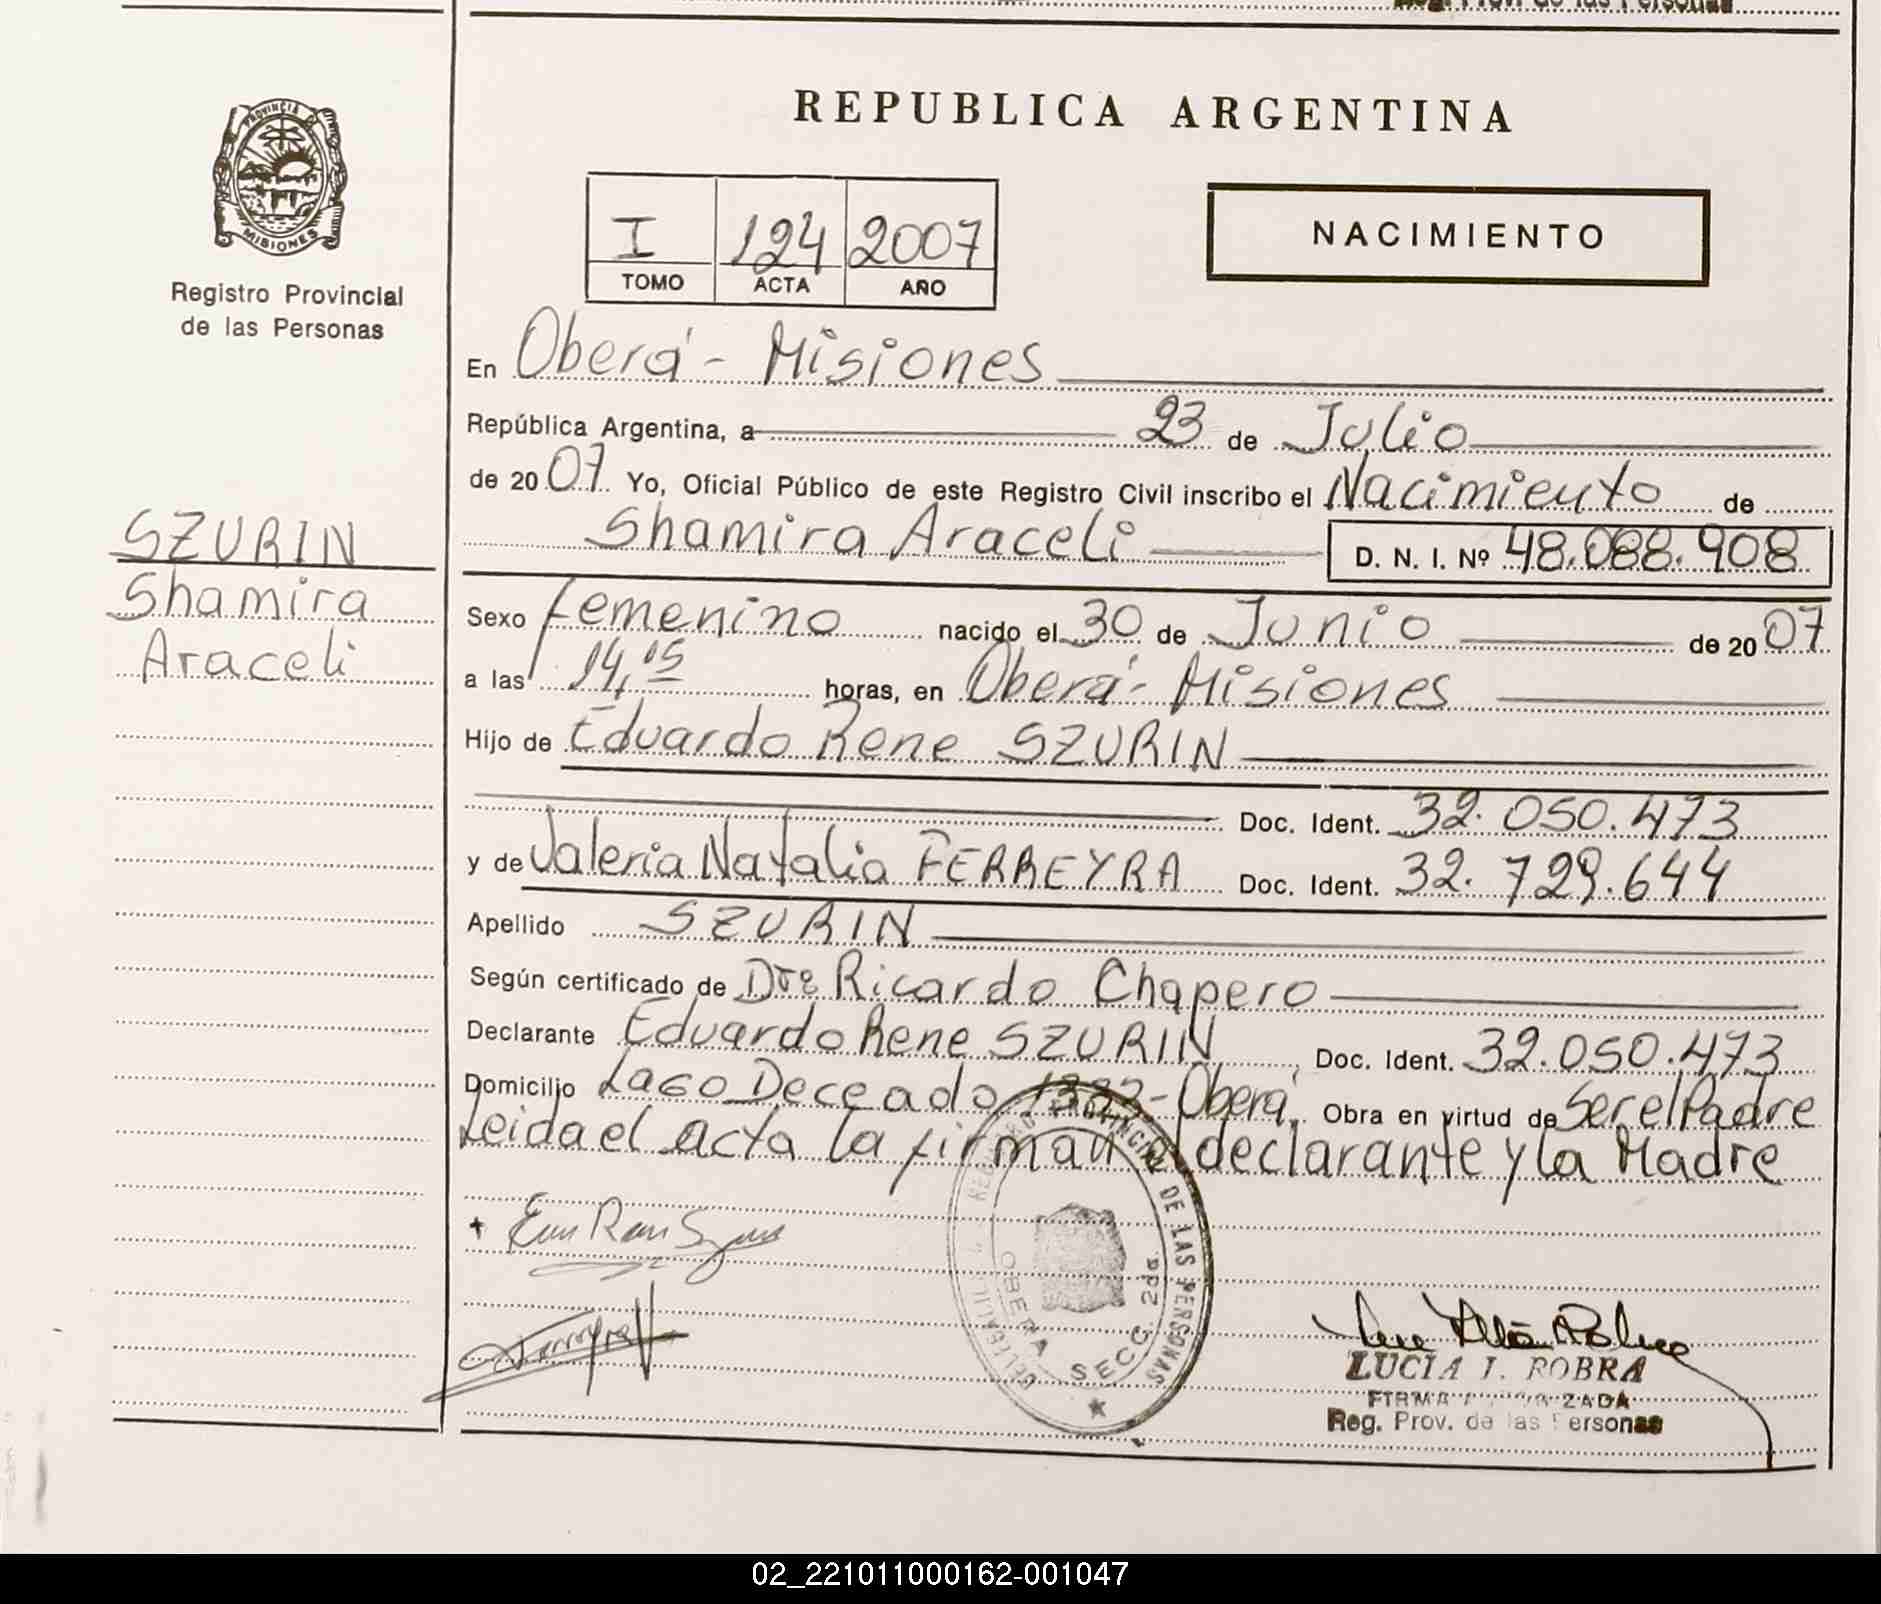 Reg. Prov. de las Personas
PROVINCIA DE
MISIONES
Registro Provincial
de las Personas
SZURIN
Shamira
Araceli
REPUBLICA ARGENTINA
I 124 2007
TOMO ACTA AÑO
NACIMIENTO
En Oberá - Misiones
República Argentina, a 23 de Julio
de 2007 Yo, Oficial Público de este Registro Civil inscribo el Nacimiento de
Shamira Araceli D. N. I. Nº 48.088.908
Sexo femenino nacido el 30 de Junio de 2007
a las 14,15 horas, en Oberá - Misiones
Hijo de Eduardo Rene SZURIN
Doc. Ident. 32.050.473
y de Valeria Natalia FERREYRA Doc. Ident. 32.729.644
Apellido SZURIN
Según certificado de Dr: Ricardo Chapero
Declarante Eduardo Rene SZURIN Doc. Ident. 32.050.473
Domicilio Lago Deceado - Oberá Obra en virtud de Ser el Padre
Leida el acta la firman el declarante y la Madre
REGISTRO PROVINCIAL DE LAS PERSONAS
OBERA SECC 2da.
LUCIA I. ROBRA
FIRMA AUTORIZADA
Reg. Prov. de las Personas
02_221011000162-001047